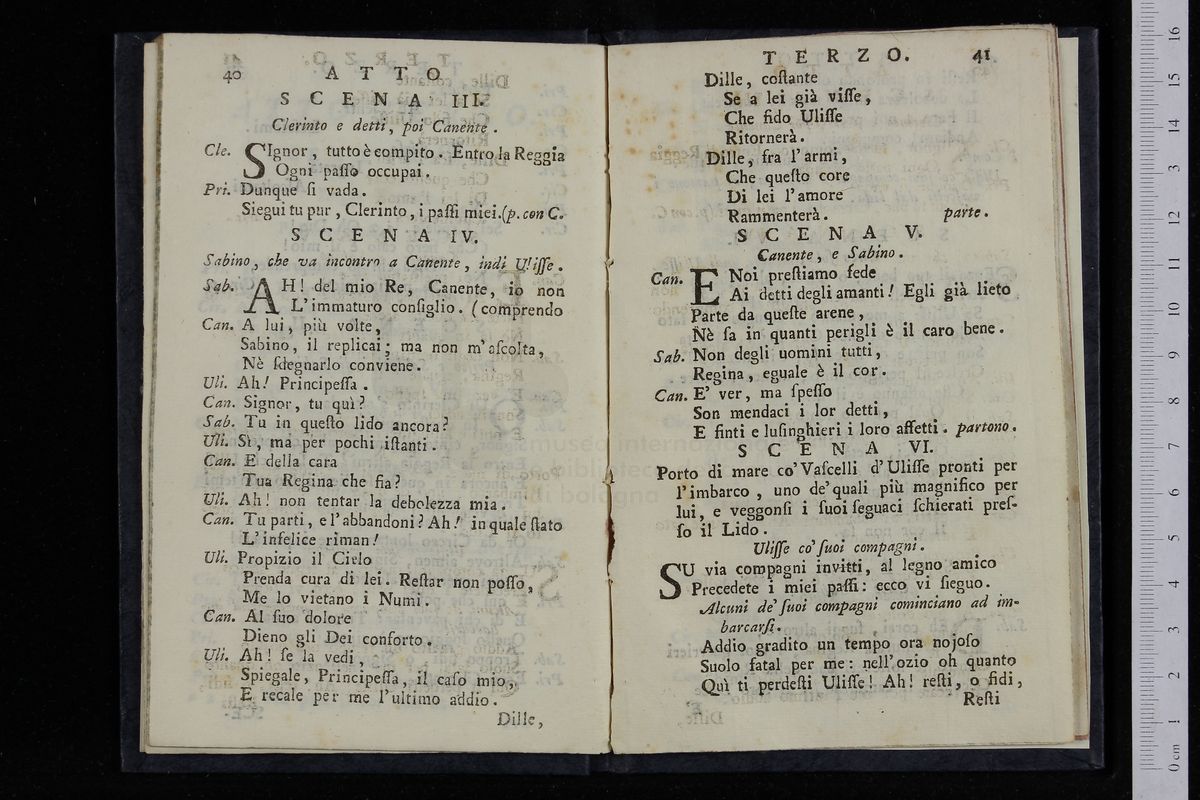 40 A T T O
S C E N A III.
Clerinto e detti, poi Canente.
Cle. SIgnor, tutto è compito. Entro la Reggia
Ogni paſſo occupai.
Pri. Dunque ſi vada.
Siegui tu pur, Clerinto, i paſſi miei.(p. con C.
S C E N A IV.
Sabino, che va incontro a Canente, indi Uliſſe.
Sab. AH! del mio Re, Canente, io non
L'immaturo conſiglio. (comprendo
Can. A lui, più volte,
Sabino, il replicai; ma non m'aſcolta,
Nè ſdegnarlo conviene.
Uli. Ah! Principeſſa.
Can. Signor, tu quì?
Sab. Tu in queſto lido ancora?
Uli. Sì, ma per pochi iſtanti.
Can. E della cara
Tua Regina che fia?
Uli. Ah! non tentar la debolezza mia.
Can. Tu parti, e l'abbandoni? Ah! in quale ſtato
L'infelice riman!
Uli. Propizio il Cielo
Prenda cura di lei. Reſtar non poſſo,
Me lo vietano i Numi.
Can. Al ſuo dolore
Dieno gli Dei conforto.
Uli. Ah! ſe la vedi,
Spiegale, Principeſſa, il caſo mio,
E recale per me l'ultimo addio.
Dille,
T E R Z O. 41
Dille, coſtante
Se a lei già viſſe,
Che fido Uliſſe
Ritornerà.
Dille, fra l'armi,
Che queſto core
Di lei l'amore
Rammenterà. parte.
S C E N A V.
Canente, e Sabino.
Can. E Noi preſtiamo fede
Ai detti degli amanti! Egli già lieto
Parte da queſte arene,
Nè ſa in quanti perigli è il caro bene.
Sab. Non degli uomini tutti,
Regina, eguale è il cor.
Can. E' ver, ma ſpeſſo
Son mendaci i lor detti,
E finti e luſinghieri i loro affetti. partono.
S C E N A VI.
Porto di mare co' Vaſcelli d'Uliſſe pronti per
l'imbarco, uno de' quali più magnifico per
lui, e veggonſi i ſuoi ſeguaci ſchierati preſ-
ſo il Lido.
Uliſſe co' ſuoi compagni.
SU via compagni invitti, al legno amico
Precedete i miei paſſi: ecco vi ſieguo.
Alcuni de' ſuoi compagni cominciano ad im-
barcarſi.
Addio gradito un tempo ora nojoſo
Suolo fatal per me: nell'ozio oh quanto
Quì ti perdeſti Uliſſe! Ah! reſti, o fidi,
Reſti